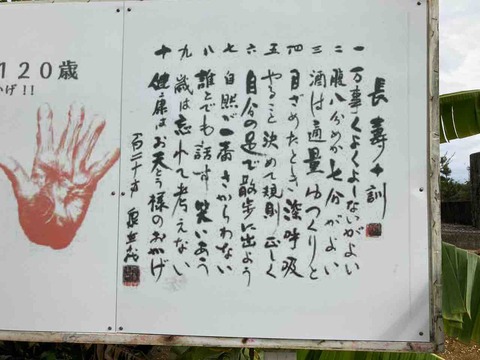 120歳
かげ!!
長壽十訓
一 万事くよくよしないがよい
二 腹八分めか七分がよい
三 酒は適量ゆっくりと
四 目ざめたとき深呼吸
五 やること決めて規則正しく
六 自分の足で散歩に出よう
七 自然が一番さからわない
八 誰とでも話す笑いあう
九 歳は忘れて考えない
十 健康はお天とう様のおかげ
百二十才 泉重千代